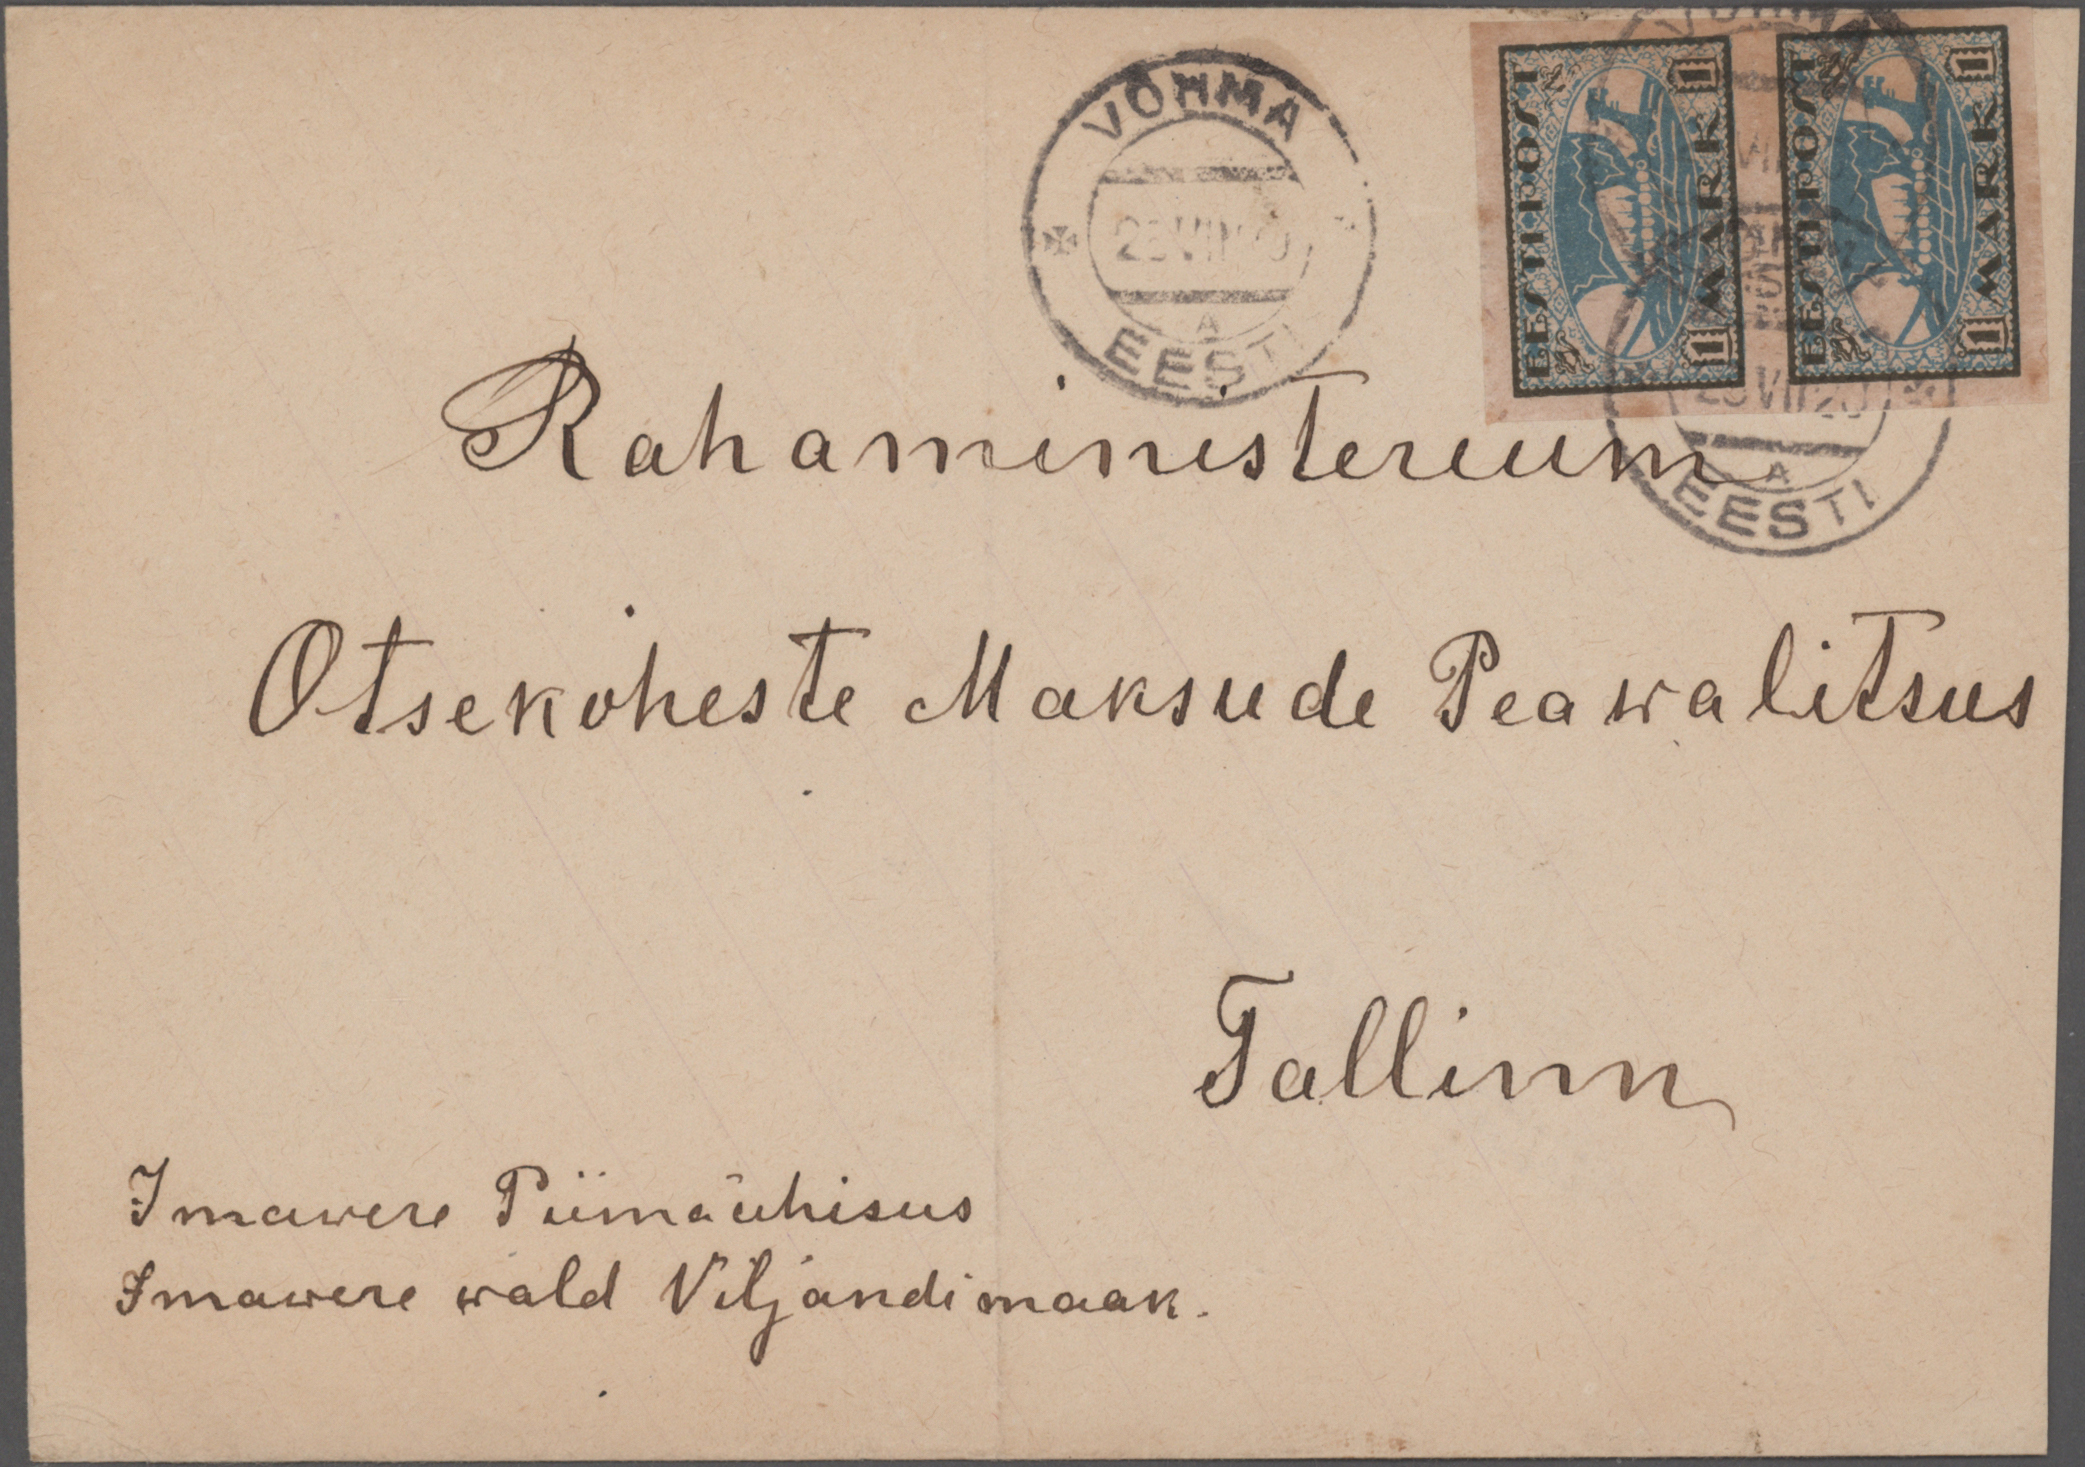 VÕHMA
A
EESTI
EESTI POST
1 MARK 1
EESTI POST
1 MARK 1
A
EESTI
Rahaministerium
Otsekoheste Maksude Peawalitsus
Tallinn
Imawere Piimaühisus
Imawere wald Viljandimaak.